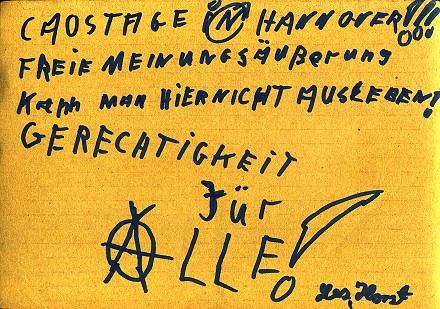 CAOSTAGE IN HANNOVER!!!
FREIE MEINUNGSÄUßerung
Kann man HIER NICHT AUSLEBEN!
GERECHTIGKEIT
für
ALLE!